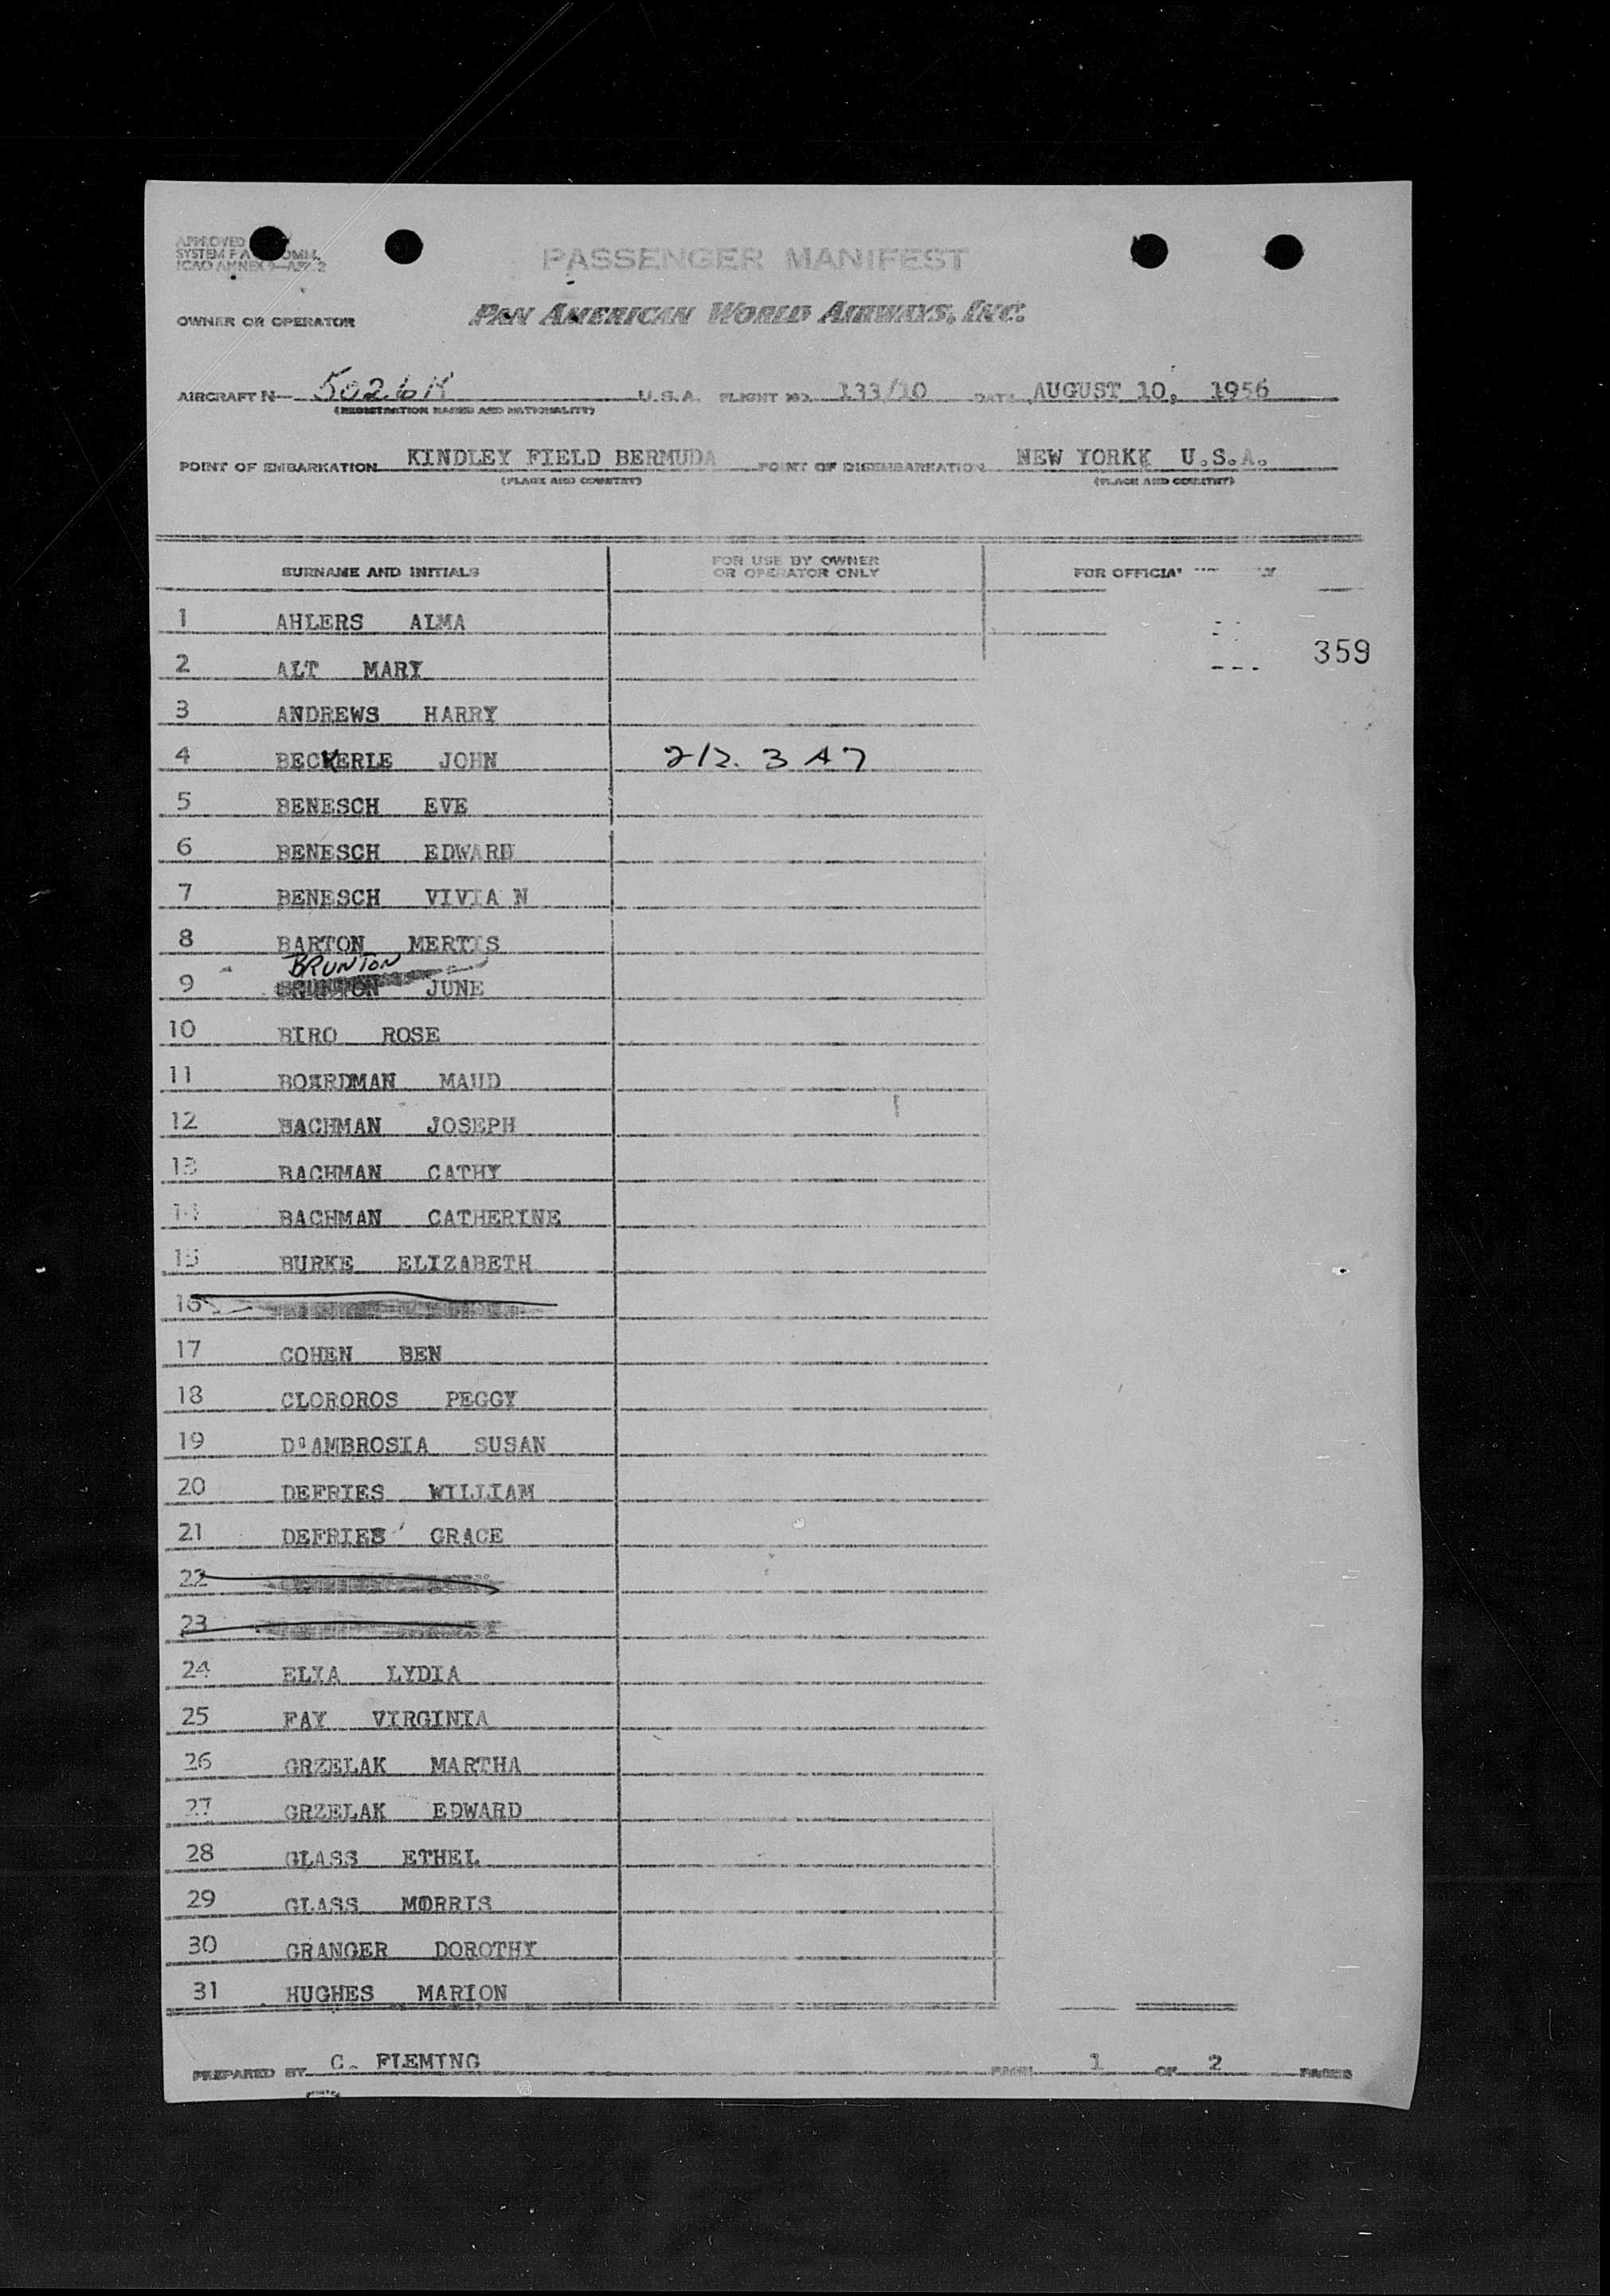 APPROVED
SYSTEM F A OMM.
ICAO ANNEX 9—APP. 2
PASSENGER MANIFEST
OWNER OR OPERATOR PAN AMERICAN WORLD AIRWAYS, INC.
AIRCRAFT N— 5026K U.S.A. FLIGHT NO. 133/10 DATE AUGUST 10, 1956
(REGISTRATION MARKS AND NATIONALITY)
POINT OF EMBARKATION KINDLEY FIELD BERMUDA POINT OF DISEMBARKATION NEW YORKK U.S.A.
(PLACE AND COUNTRY) (PLACE AND COUNTRY)
SURNAME AND INITIALS FOR USE BY OWNER OR OPERATOR ONLY FOR OFFICIAL
1 AHLERS ALMA
359
2 ALT MARY
3 ANDREWS HARRY
4 BECKERLE JOHN 212. 3 A7
5 BENESCH EVE
6 BENESCH EDWARD
7 BENESCH VIVIA N
8 BARTON MERTIS
BRUNTON
9 JUNE
10 BIRO ROSE
11 BOARDMAN MAUD
12 BACHMAN JOSEPH
13 BACHMAN CATHY
14 BACHMAN CATHERINE
15 BURKE ELIZABETH
16
17 COHEN BEN
18 CLOROROS PEGGY
19 D'AMBROSIA SUSAN
20 DEFRIES WILLIAM
21 DEFRIES GRACE
22
23
24 ELIA LYDIA
25 FAY VIRGINIA
26 GRZELAK MARTHA
27 GRZELAK EDWARD
28 GLASS ETHEL
29 GLASS MORRIS
30 GRANGER DOROTHY
31 HUGHES MARION
PREPARED BY C. FLEMING PAGE 1 OF 2 PAGES